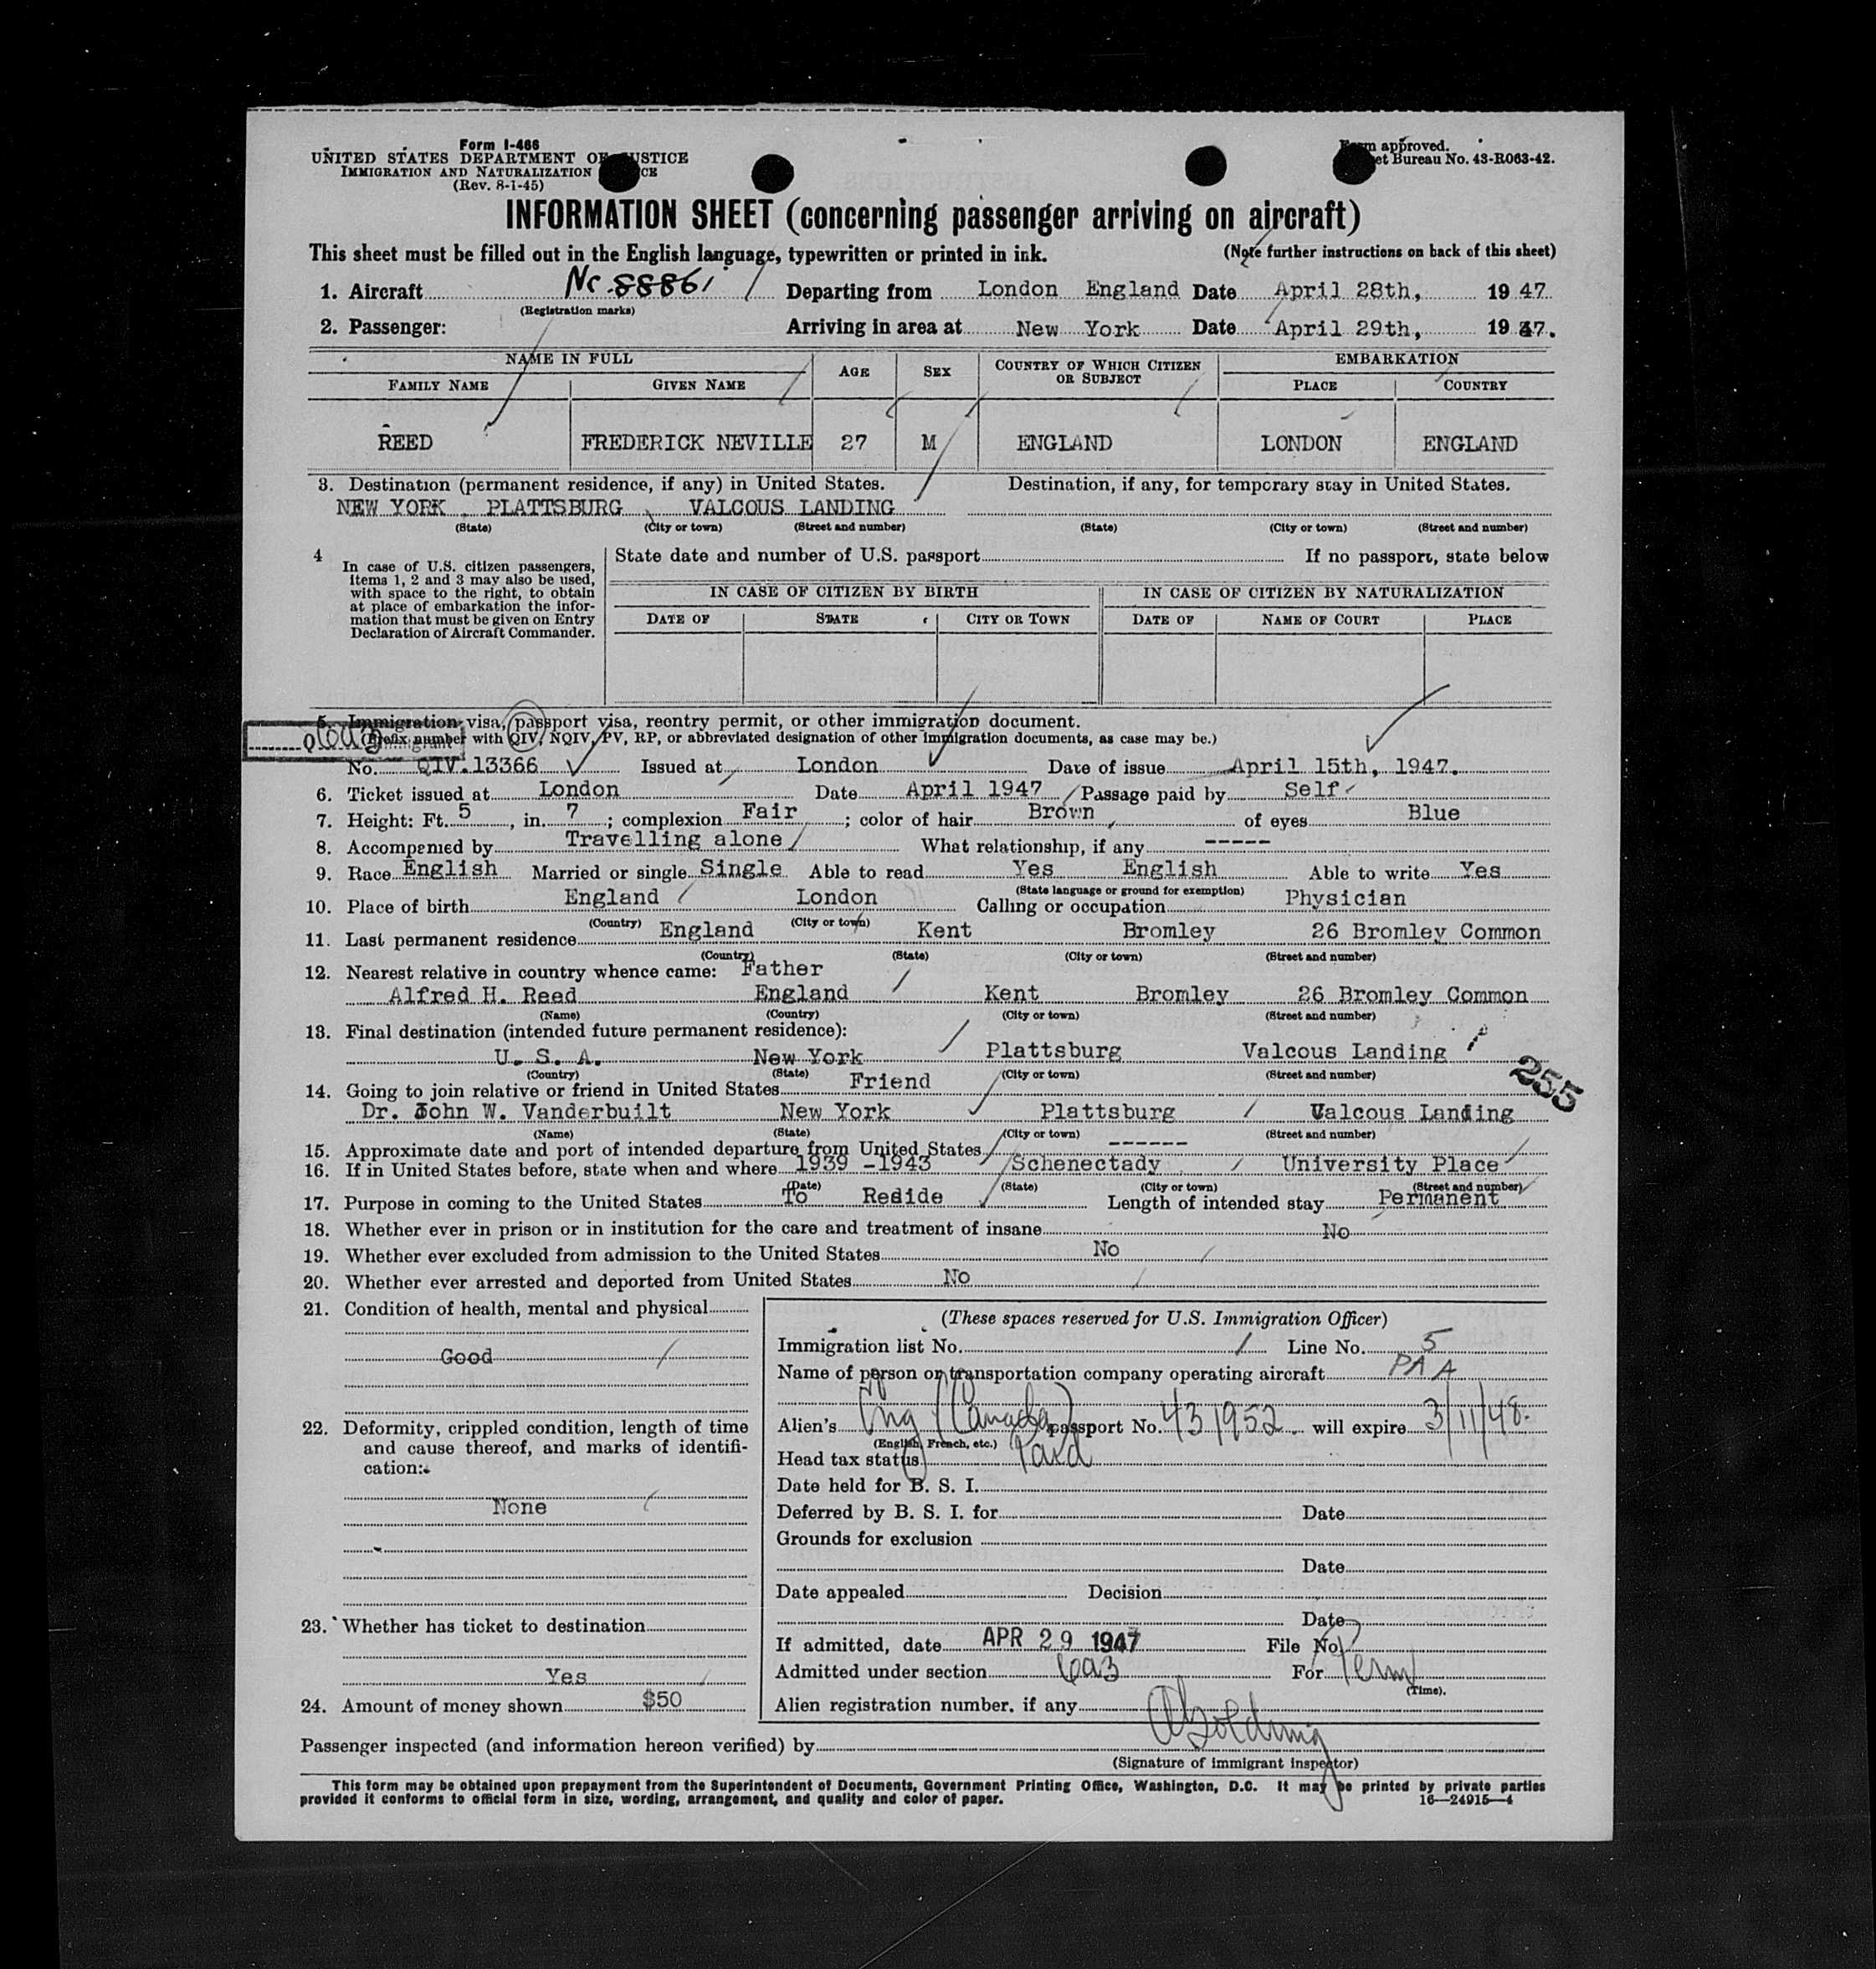 Form I-466
UNITED STATES DEPARTMENT OF JUSTICE
IMMIGRATION AND NATURALIZATION CE
(Rev. 8-1-45)
Form approved.
et Bureau No. 43-R063-42.
INFORMATION SHEET (concerning passenger arriving on aircraft)
This sheet must be filled out in the English language, typewritten or printed in ink. (Note further instructions on back of this sheet)
1. Aircraft Nc. 88861 Departing from London England Date April 28th, 19 47.
(Registration marks)
2. Passenger: Arriving in area at New York Date April 29th, 19 47.
NAME IN FULL AGE SEX COUNTRY OF WHICH CITIZEN OR SUBJECT EMBARKATION
FAMILY NAME GIVEN NAME PLACE COUNTRY
REED FREDERICK NEVILLE 27 M ENGLAND LONDON ENGLAND
3. Destination (permanent residence, if any) in United States. Destination, if any, for temporary stay in United States.
NEW YORK , PLATTSBURG VALCOUS LANDING
(State) (City or town) (Street and number) (State) (City or town) (Street and number)
4 In case of U.S. citizen passengers, items 1, 2 and 3 may also be used, with space to the right, to obtain at place of embarkation the information that must be given on Entry Declaration of Aircraft Commander.
State date and number of U.S. passport If no passport, state below
IN CASE OF CITIZEN BY BIRTH IN CASE OF CITIZEN BY NATURALIZATION
DATE OF STATE CITY OR TOWN DATE OF NAME OF COURT PLACE
5. Immigration visa, passport visa, reentry permit, or other immigration document.
(Prefix number with QIV, NQIV, PV, RP, or abbreviated designation of other immigration documents, as case may be.)
6a3
No. QIV.13366 Issued at London Date of issue April 15th, 1947.
6. Ticket issued at London Date April 1947 Passage paid by Self
7. Height: Ft. 5, in. 7; complexion Fair; color of hair Brown, of eyes Blue
8. Accompanied by Travelling alone What relationship, if any -----
9. Race English Married or single Single Able to read Yes English Able to write Yes
(State language or ground for exemption)
10. Place of birth England London Calling or occupation Physician
(Country) (City or town)
11. Last permanent residence England Kent Bromley 26 Bromley Common
(Country) (State) (City or town) (Street and number)
12. Nearest relative in country whence came: Father
Alfred H. Reed England Kent Bromley 26 Bromley Common
(Name) (Country) (City or town) (Street and number)
13. Final destination (intended future permanent residence):
U. S. A. New York Plattsburg Valcous Landing
(Country) (State) (City or town) (Street and number)
255
14. Going to join relative or friend in United States Friend
Dr. John W. Vanderbuilt New York Plattsburg Valcous Landing
(Name) (State) (City or town) (Street and number)
15. Approximate date and port of intended departure from United States ------
16. If in United States before, state when and where 1939 -1943 Schenectady University Place
(Date) (State) (City or town) (Street and number)
17. Purpose in coming to the United States To Reside Length of intended stay Permanent
18. Whether ever in prison or in institution for the care and treatment of insane No
19. Whether ever excluded from admission to the United States No
20. Whether ever arrested and deported from United States No
21. Condition of health, mental and physical
Good
22. Deformity, crippled condition, length of time and cause thereof, and marks of identification:
None
23. Whether has ticket to destination
Yes
24. Amount of money shown $50
(These spaces reserved for U.S. Immigration Officer)
Immigration list No. 1 Line No. 5
Name of person or transportation company operating aircraft PAA
Alien's Eng (Canada) passport No. 431952. will expire 3/11/48.
(English, French, etc.)
Head tax status Paid
Date held for B. S. I.
Deferred by B. S. I. for Date
Grounds for exclusion
Date
Date appealed Decision
Date
If admitted, date APR 29 1947 File No.
Admitted under section 6a3 For Perm
(Time).
Alien registration number, if any
Passenger inspected (and information hereon verified) by A Golding
(Signature of immigrant inspector)
This form may be obtained upon prepayment from the Superintendent of Documents, Government Printing Office, Washington, D.C. It may be printed by private parties
provided it conforms to official form in size, wording, arrangement, and quality and color of paper. 16—24915—4